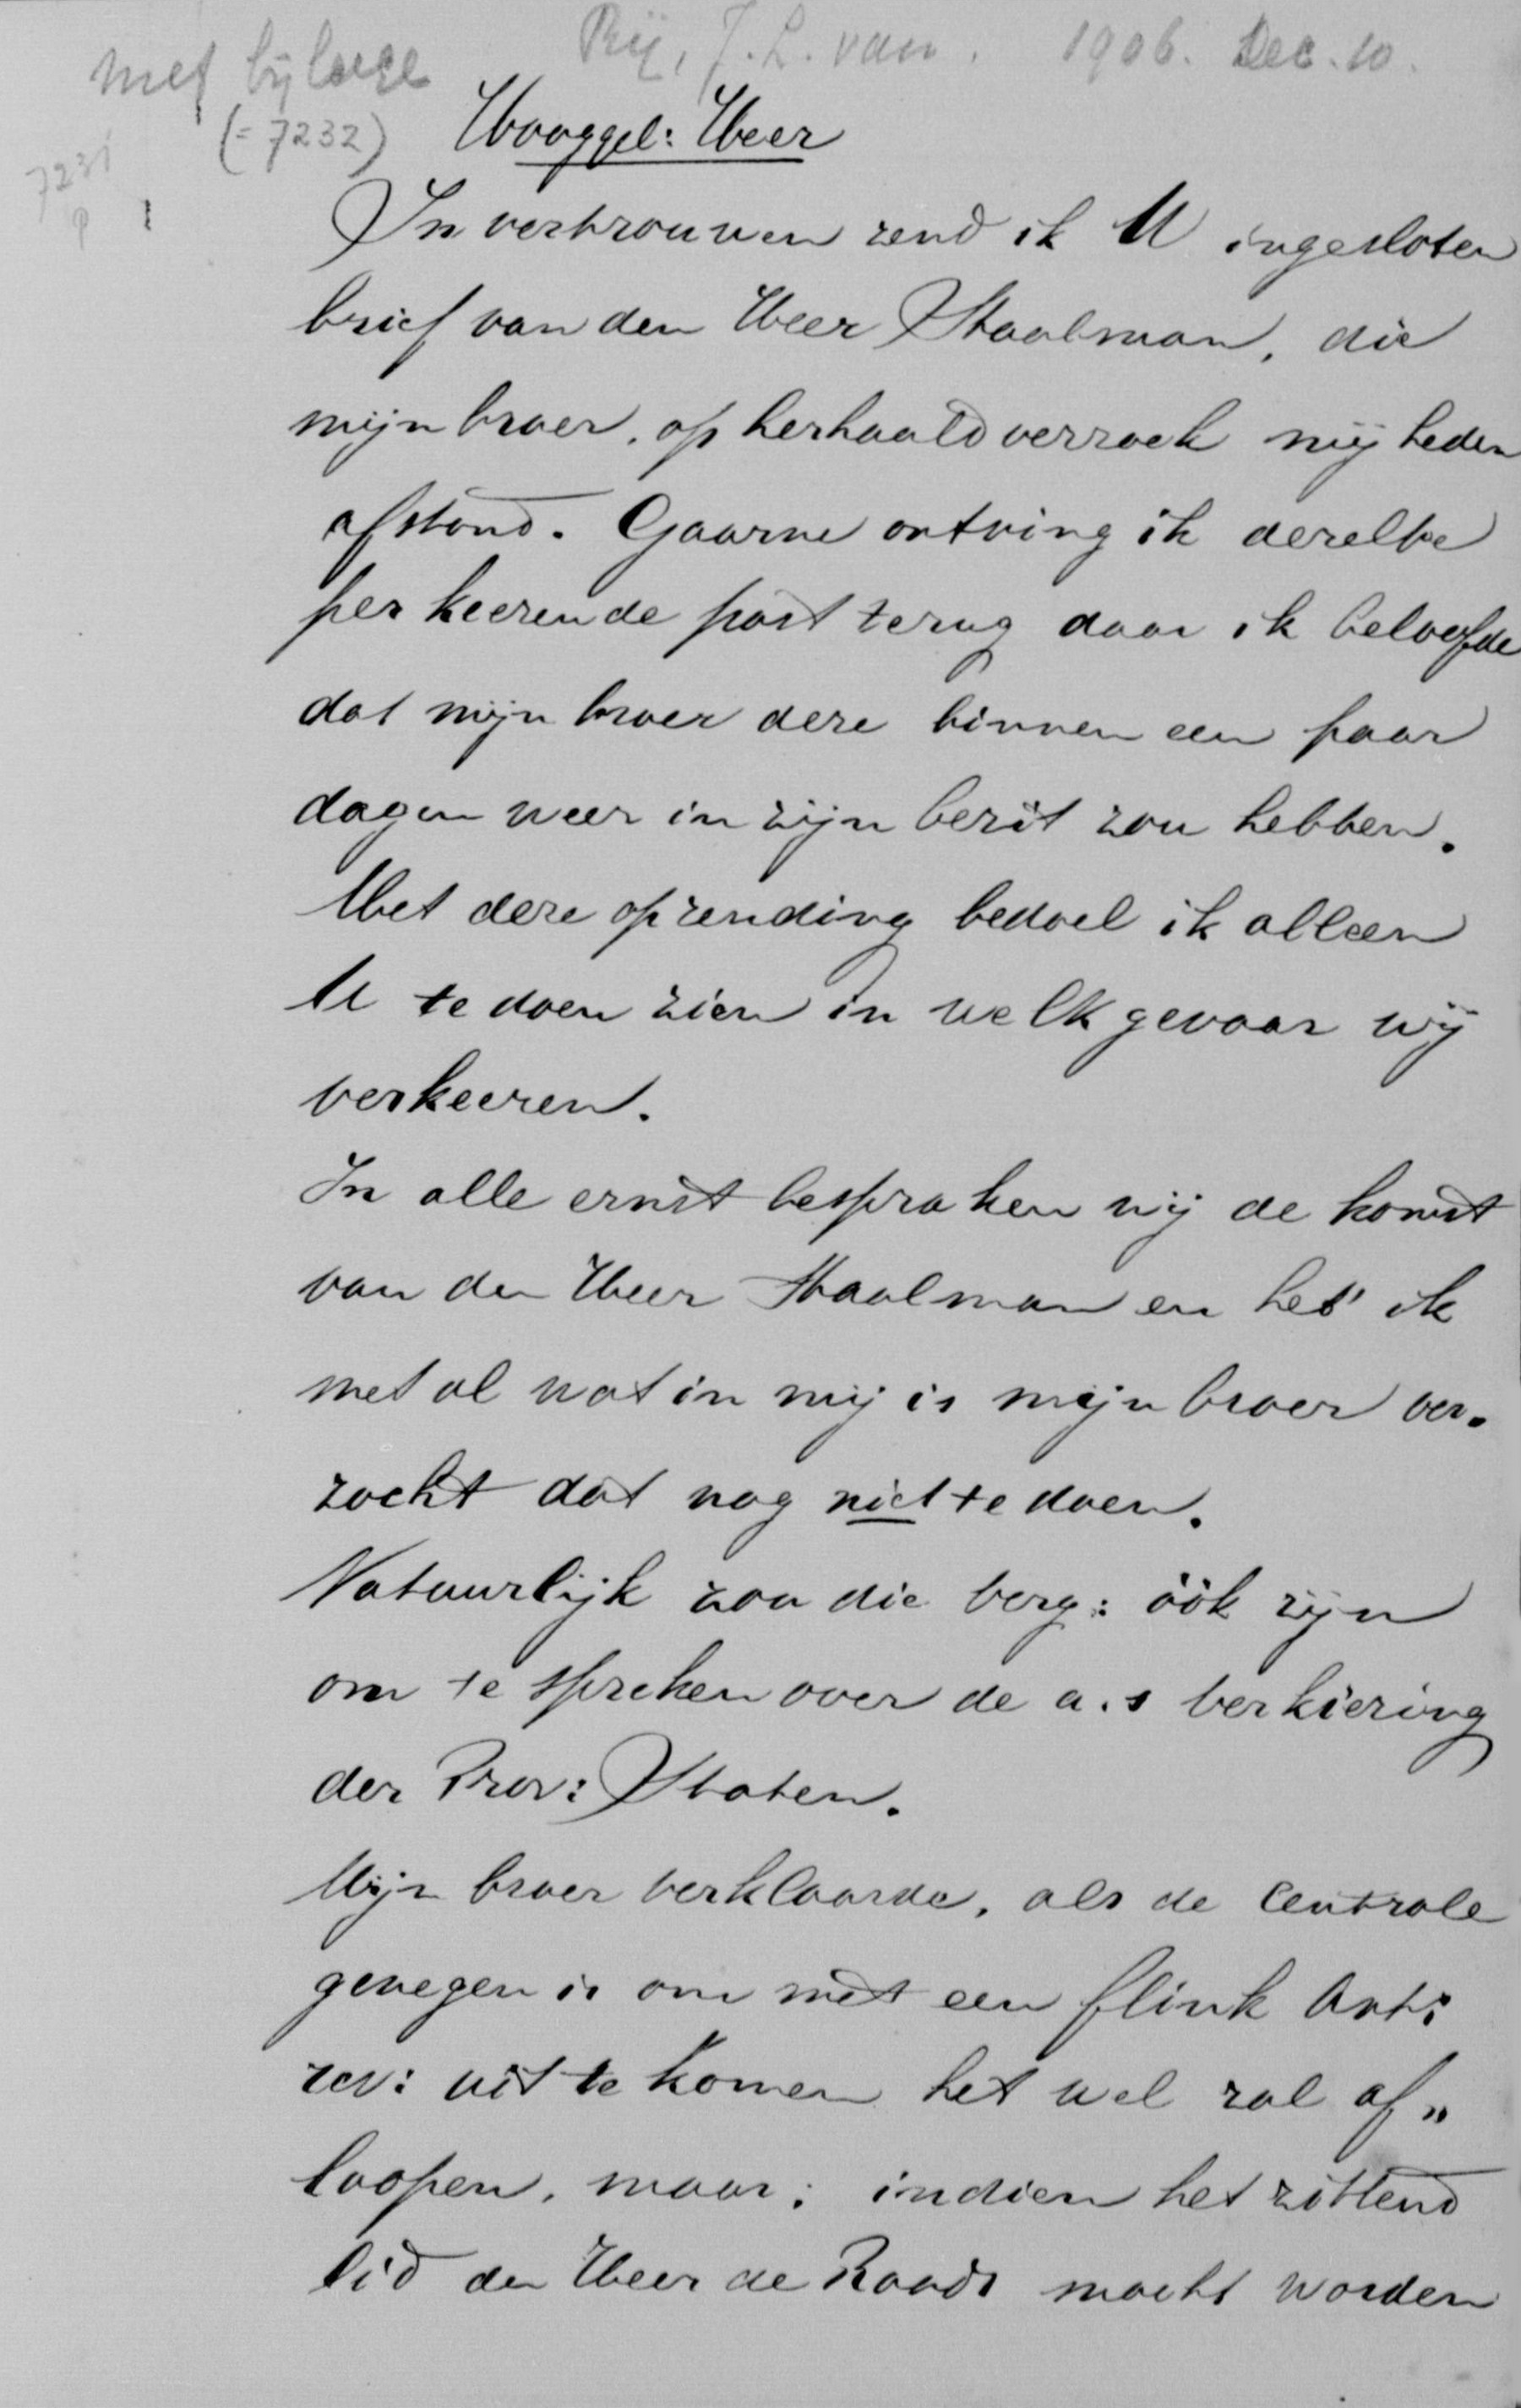 met bijlage
Rij, J. L. van. 1906. Dec. 10.
(= 7232)
7231
P
Hooggel: Heer
In vertrouwen zend ik U ingesloten
brief van den Heer Staalman, die
mijn broer, op herhaald verzoek mij heden
afstond. Gaarne ontving ik dezelve
per keerende post terug daar ik beloofde
dat mijn broer deze binnen een paar
dagen weer in zijn bezit zou hebben.
Met deze opzending bedoel ik alleen
U te doen zien in welk gevaar wij
verkeeren.
In alle ernst bespraken wij de komst
van den Heer Staalman en heb ik
met al wat in mij is mijn broer ver-
zocht dat nog niet te doen.
Natuurlijk zou die verg: óók zijn
om te spreken over de a.s verkiezing
der Prov: Staten.
Mijn broer verklaarde, als de Centrale
genegen is om met een flink Anti
rev: uit te komen het wel zal af„
loopen, maar; indien het zittend
lid den Heer de Raadt mocht worden